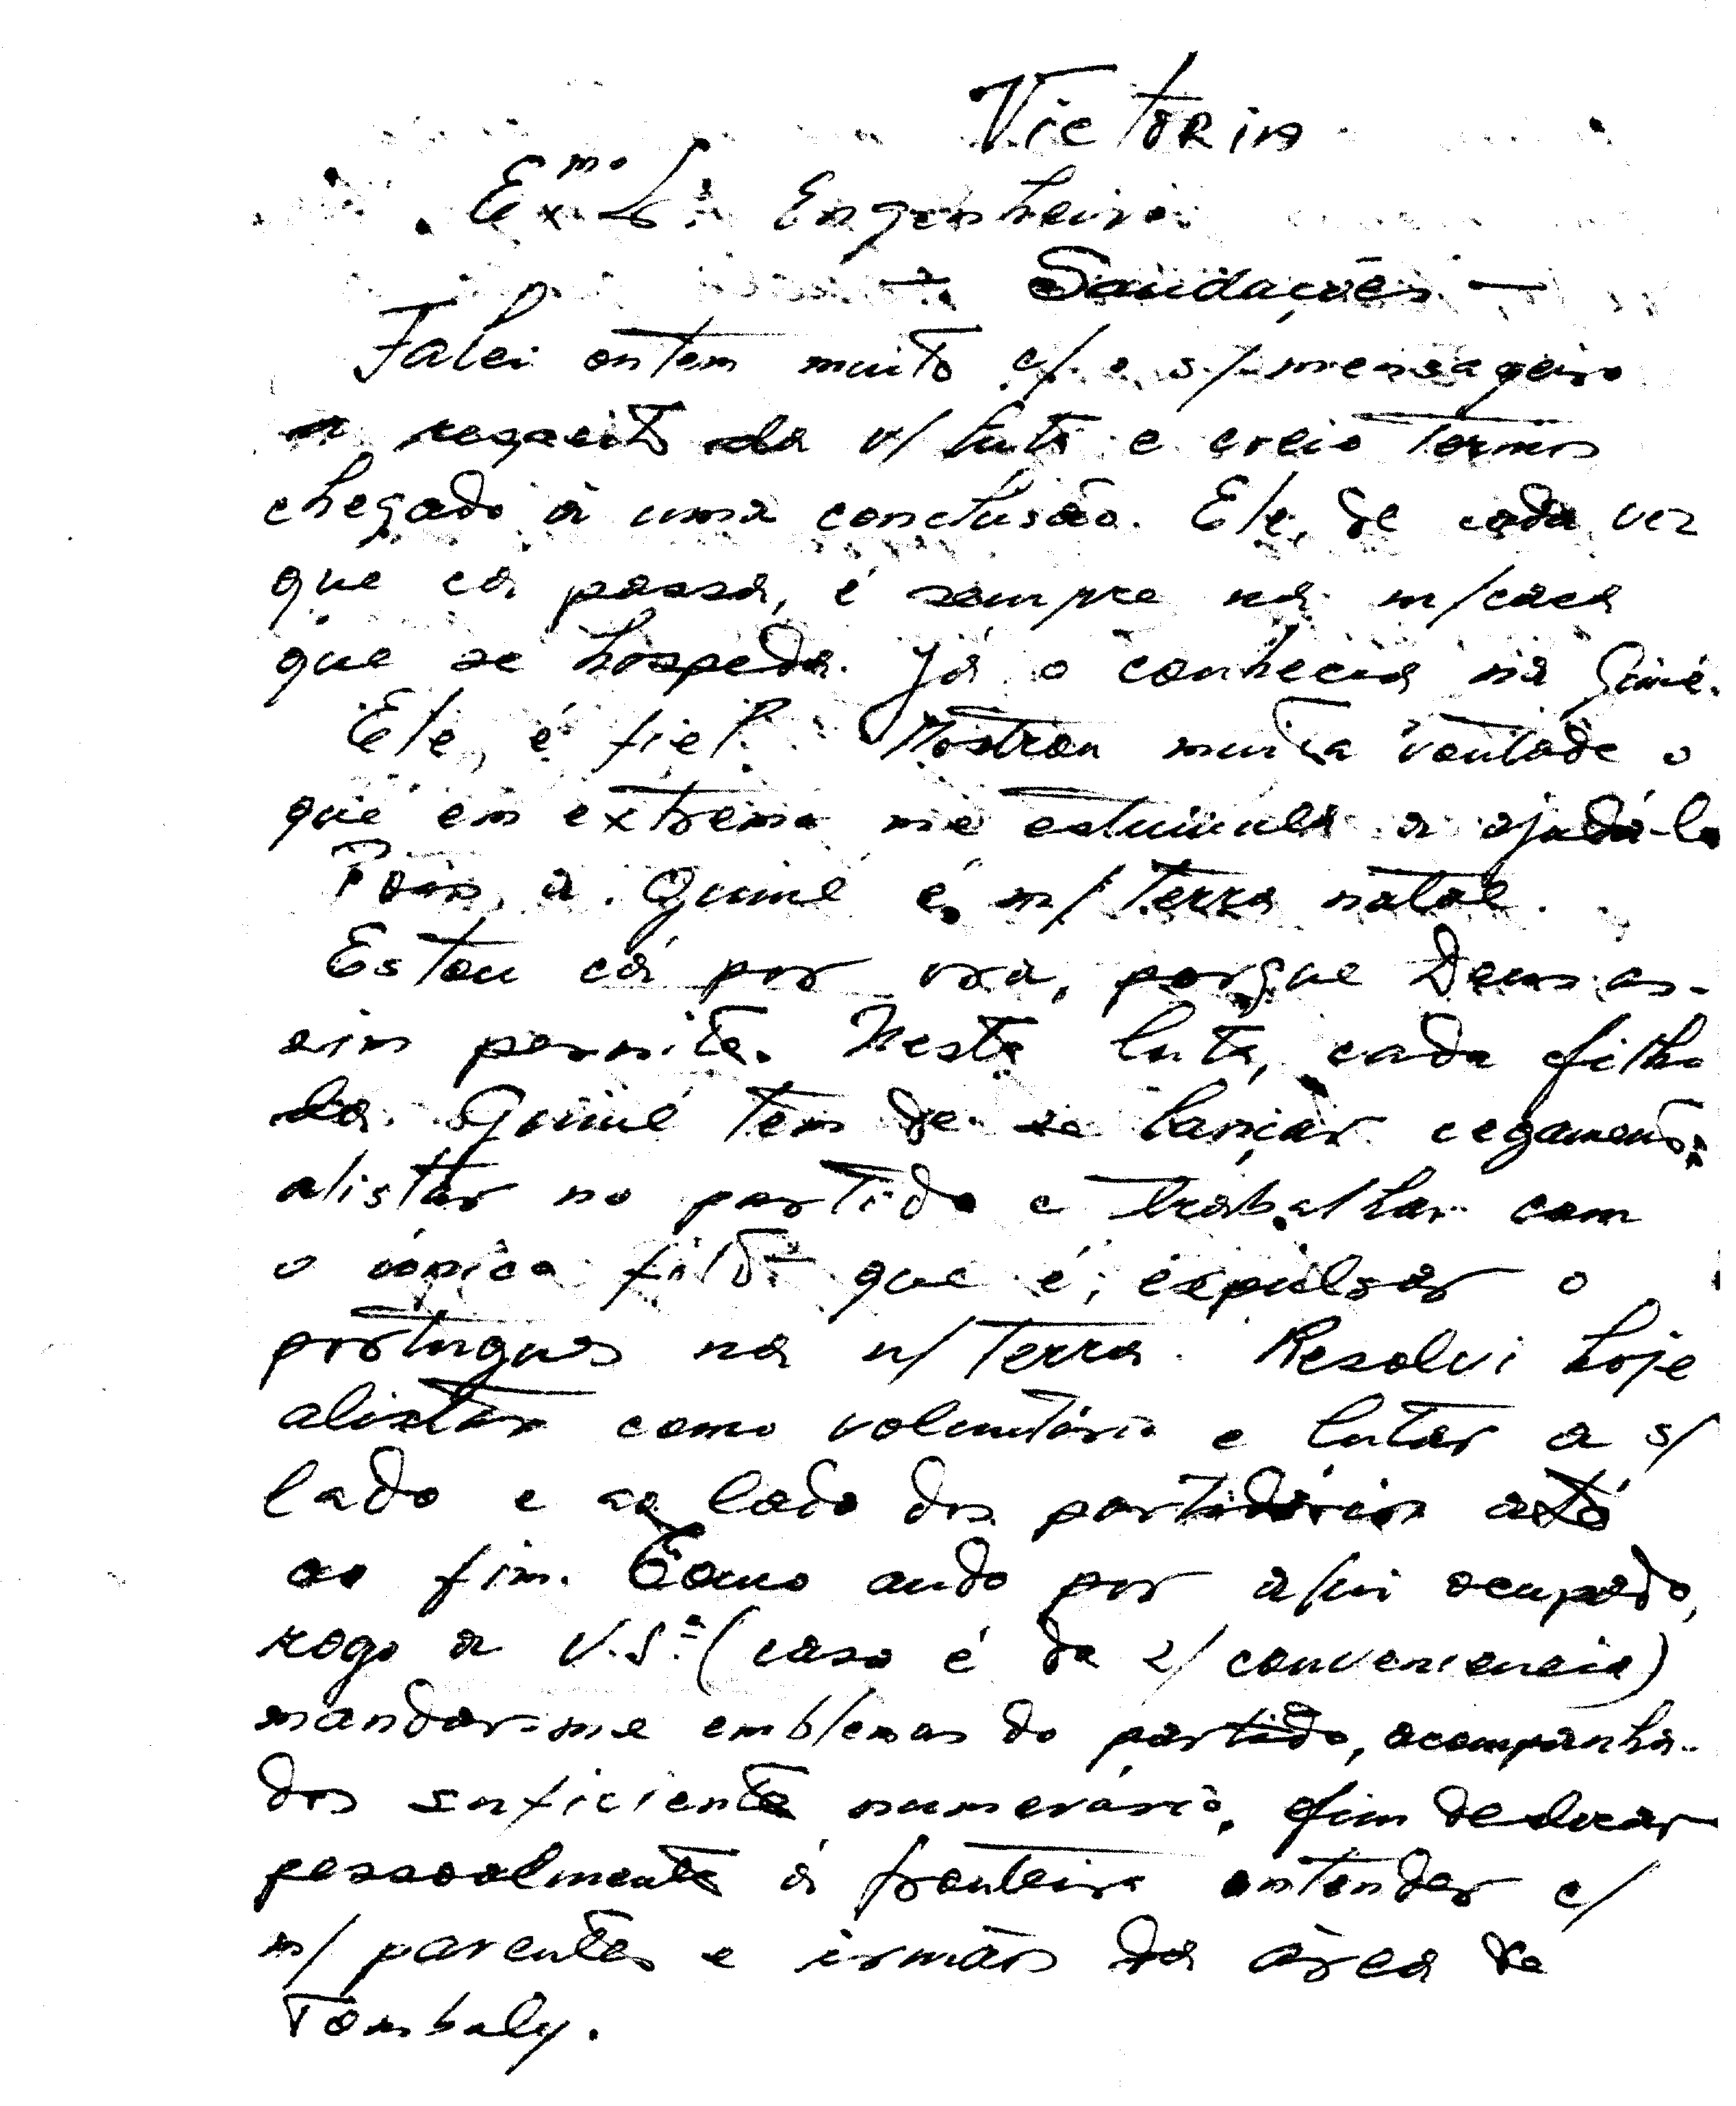 Victoria
Exmo Sr. Engenheiro
— Saudações —
Falei ontem muito c/ o s/ mensageiro
a respeito da v/ luta e creio termos
chegado à uma conclusão. Ele, de cada vez
que cá passa, é sempre na m/casa
que se hospeda. Já o conhecia na Guiné.
Ele, é fiel. Mostrou muita vontade o
que em extremo me estimula a ajudá-lo
Pois, a Guiné é, m/ terra natal.
Estou cá por ora, porque Deus as-
sim permite. Nesta luta, cada filho
da Guiné tem de se lançar cegamente,
alistar no partido e trabalhar com
o único fito que é, expulsar o
portugues na n/ terra. Resolvi hoje
alistar como voluntário e lutar a s/
lado e ao lado dos partidários até
ao fim. Como ando por aqui ocupado,
rogo a V.Sª. (caso é da s/ conveniencia)
mandar-me emblemas do partido, acompanha-
dos suficiente numerário, afim deslocar
pessoalmente à fronteira entender c/
m/ parentes e irmãos da área de
Tombaly.